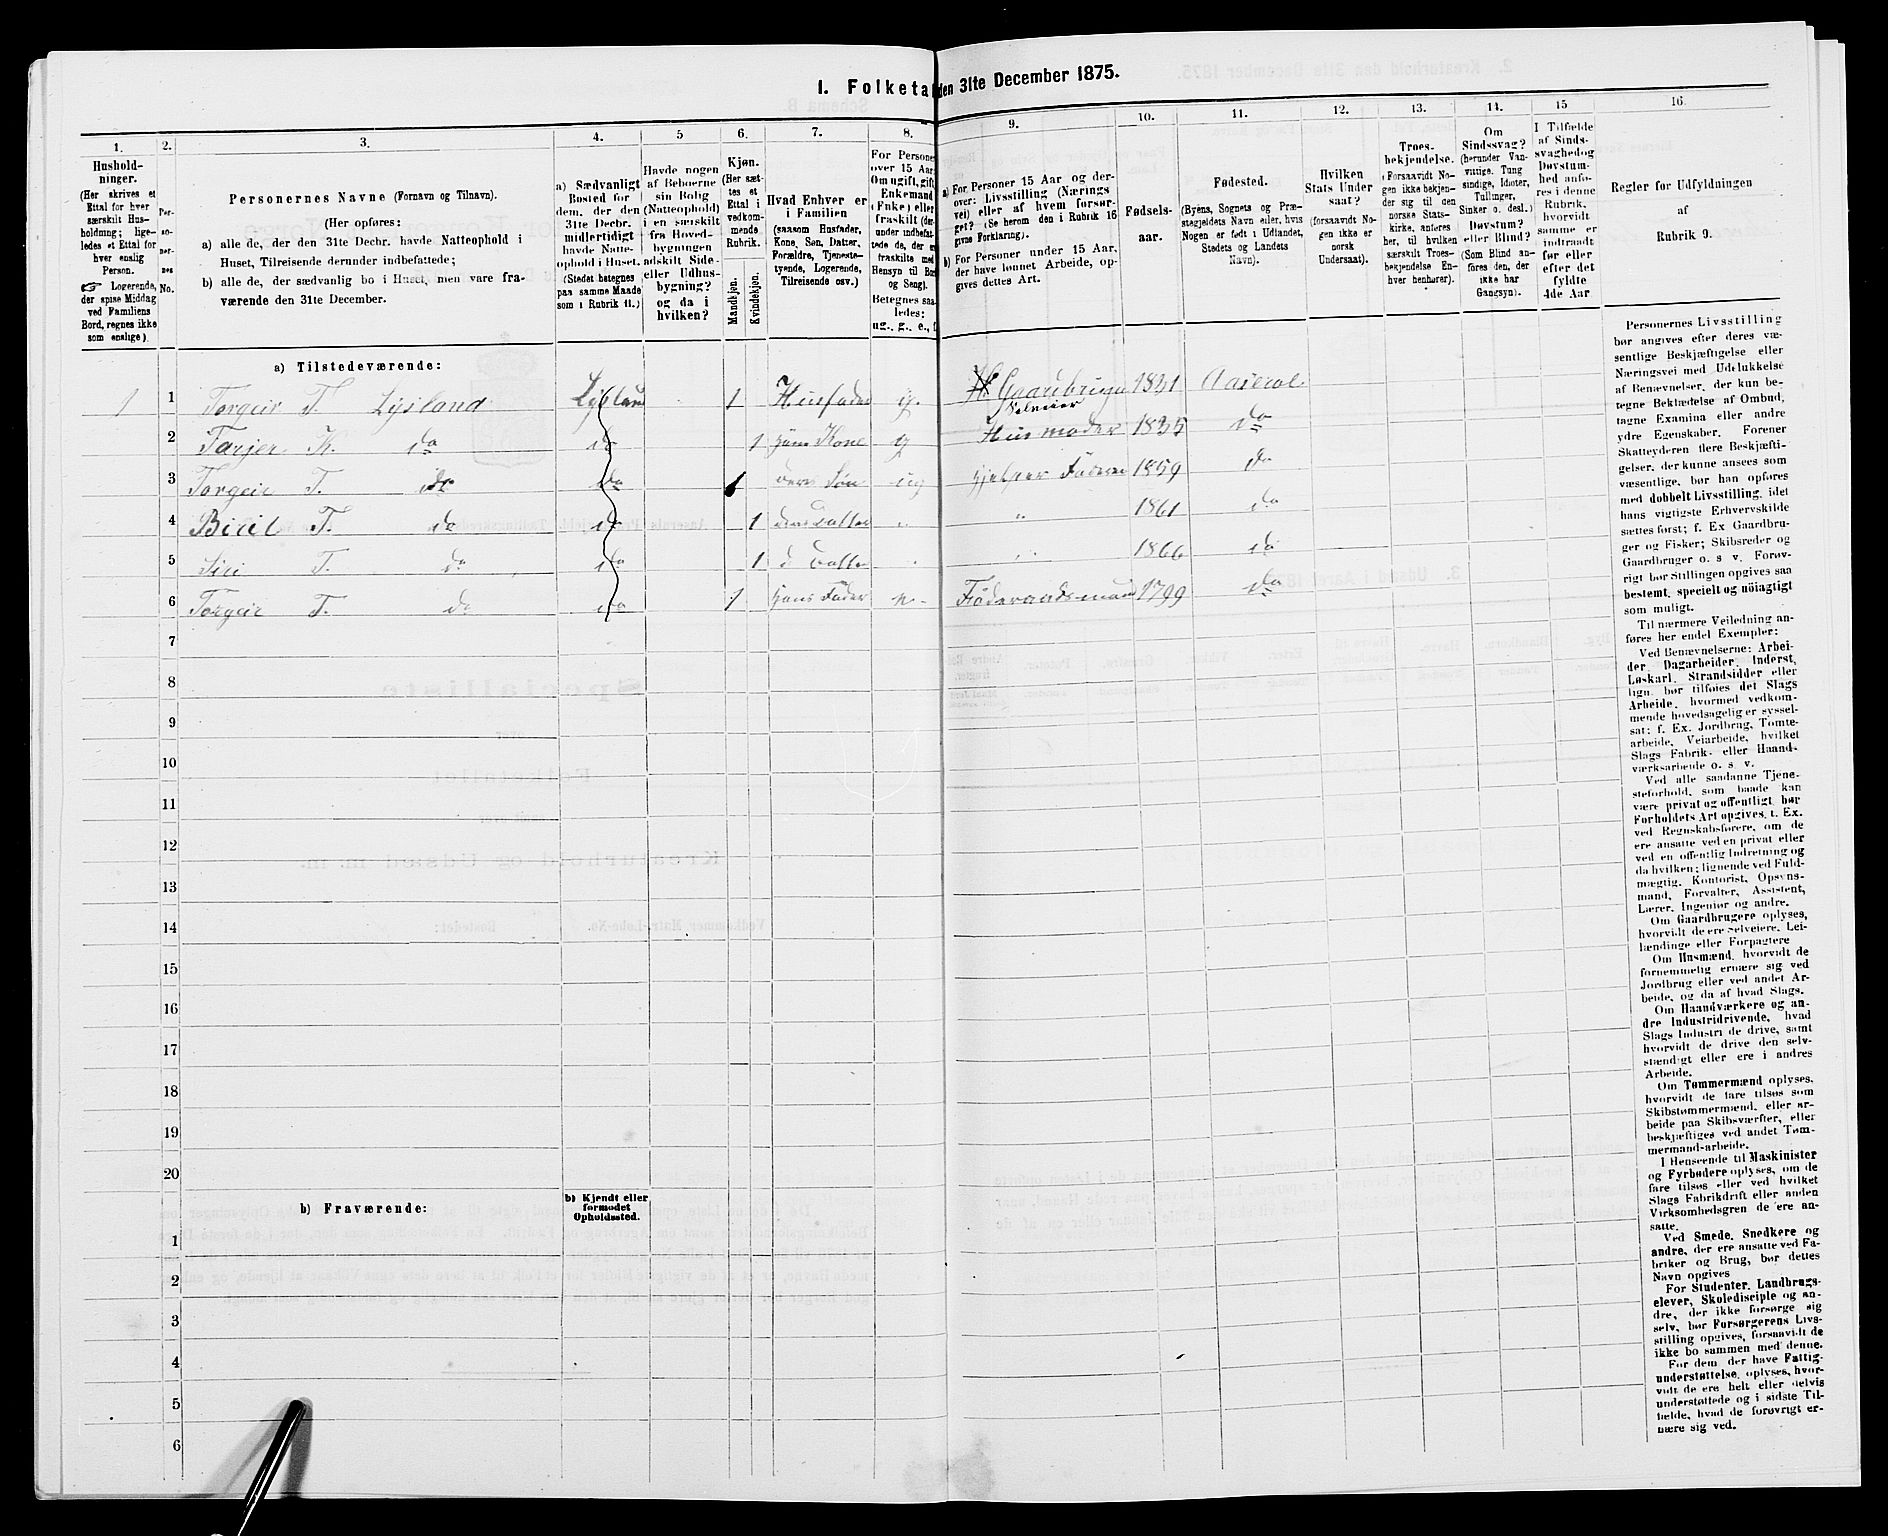 I. Folketal den 31te December 1875.
1. 2. 3. 4. 5 6. 7. 8. 9. 10. 11. 12. 13. 14. 15 16.
Hushold-
ninger.
(Her skrives et
Ettal for hver
særskilt Hus-
holdning; lige-
ledes et Ettal for
hver enslig
Person.
☞ Logerende,
der spise Middag
ved Familiens
Bord, regnes ikke
som enslige).
Per-
so-
ner-
nes
No.
Personernes Navne (Fornavn og Tilnavn).
(Her opføres:
a) alle de, der den 31te Decbr. havde Natteophold i
Huset, Tilreisende derunder indbefattede;
b) alle de, der sædvanlig bo i Huset, men vare fra-
værende den 31te December.
a) Sædvanligt
Bosted for
dem, der den
31te Decbr.
midlertidigt
havde Natte-
ophold i Huset.
(Stedet betegnes
paa samme Maade
som i Rubrik 11.)
Havde nogen
af Beboerne
sin Bolig
(Natteophold)
i en særskilt
fra Hoved-
bygningen
adskilt Side-
eller Udhus-
bygning?
og da i
hvilken?
Kjøn.
(Her sæt-
tes et
Ettal i
vedkom-
mende
Rubrik.
Mandkjøn.
Kvindekjøn.
Hvad Enhver er
i Familien
(saasom Husfader,
Kone, Søn, Datter,
Forældre, Tjeneste-
tyende, Logerende,
Tilreisende osv.)
For Personer
over 15 Aar:
Om ugift, gift,
Enkemand
(Enke) eller
fraskilt (der-
under indbefat-
tede de, der ere
fraskilte med
Hensyn til Bord
og Seng).
Betegnes saa-
ledes:
ug., g., e., f.
a) For Personer 15 Aar og der-
over: Livsstilling (Nærings-
vei) eller af hvem forsør-
get? (Se herom den i Rubrik 16
givne Forklaring).
b) For Personer under 15 Aar,
der have lønnet Arbeide, op-
gives dettes Art.
Fødsels-
aar.
Fødested.
(Byens, Sognets og Præ-
stegjeldets Navn eller, hvis
Nogen er født i Udlandet,
Stedets og Landets
Navn).
Hvilken
Stats Under-
saat?
(forsaavidt No-
gen ikke er
norsk
Undersaat).
Troes-
bekjendelse.
(Forsaavidt No-
gen ikke bekjen-
der sig til den
norske Stats-
kirke, anføres
her, til hvilken
særskilt Troes-
bekjendelse En-
hver henhører).
Om
Sindssvag?
(herunder Van-
vittige, Tung-
sindige, Idioter,
Tullinger,
Sinker o. desl.)
Døvstum?
eller Blind?
(Som Blind an-
føres den, der
ikke har
Gangsyn).
I Tilfælde
af Sinds-
svaghed og
Døvstum-
hed anfø-
res i denne
Rubrik,
hvorvidt
samme er
indtraadt
før eller
efter det
fyldte
4de Aar.
Regler for Udfyldningen
af
Rubrik 9.
a) Tilstedeværende:
1 1 Torgeir T. Lysland Lysland 1 Husfader g. Gaardbruger Selveier 1831 Aaseral
2 Tarjer K. do do 1 hans Kone g Husmoder 1835 do
3 Torgeir T. do do 1 deres Søn ug hjelper Faderen 1859 do
4 Biril T. do do 1 deres Datter " " 1861 do
5 Siri T. do do 1 d Datter " " 1866 do
6 Torgeir T. do do 1 hans Fader e. Føderaadsmand 1799 do
7
8
9
10
11
12
13
14
15
16
17
18
19
20
b) Fraværende:
b) Kjendt eller
formodet
Opholdssted.
1
2
3
4
5
6
Personernes Livsstilling
bør angives efter deres væ-
sentlige Beskjæftigelse eller
Næringsvei med Udelukkelse
af Benævnelser, der kun be-
tegne Beklædelse af Ombud,
tagne Examina eller andre
ydre Egenskaber. Forener
Skatteyderen flere Beskjæfti-
gelser, der kunne ansees som
væsentlige, bør han opføres
med dobbelt Livsstilling, idet
hans vigtigste Erhvervskilde
sættes først; f. Ex Gaardbru-
ger og Fisker; Skibsreder og
Gaardbruger o. s v. Forøv-
rigt bør Stillingen opgives saa
bestemt, specielt og nöiagtigt
som muligt.
Til nærmere Veiledning an-
føres her endel Exempler:
Ved Benævnelserne: Arbei-
der, Dagarbeider, Inderst,
Løskarl, Strandsidder eller
lign. bør tilføies det Slags
Arbeide, hvormed vedkom-
mende hovedsagelig er syssel-
sat; f. Ex. Jordbrug, Tomte-
arbeide, Veiarbeide, hvilket
Slags Fabrik- eller Haand-
værksarbeide o. s. v.
Ved alle saadanne Tjene-
steforhold, som baade kan
være privat og offentligt, bør
Forholdets Art opgives, t. Ex.
ved Regnskabsførere, om de
ere ansatte ved en privat eller
ved en offentlig Indretning og
da hvilken; lignende ved Fuld-
mægtig, Kontorist, Opsyns-
mand, Forvalter, Assistent,
Lærer, Ingeniør og andre.
Om Gaardbrugere oplyses,
hvorvidt de ere Selveiere, Lei-
lændinge eller Forpagtere
Om Husmænd, hvorvidt de
fornemmelig ernære sig ved
Jordbrug eller ved andet Ar-
beide, og da af hvad Slags.
Om Haandværkere og an-
dre Industridrivende, hvad
Slags Industri de drive, samt
hvorvidt de drive den selv-
stændigt eller ere i andres
Arbeide.
Om Tømmermænd oplyses,
hvorvidt de fare tilsøs som
Skibstømmermænd, eller ar-
beide paa Skibsværfter, eller
beskjæftiges ved andet Tøm-
mermand-arbeide.
I Henseende til Maskinister
og Fyrbødere oplyses, om de
fare tilsøs eller ved hvilket
Slags Fabrikdrift eller anden
Virksomhedsgren de ere an-
satte.
Ved Smede, Snedkere og
andre, der ere ansatte ved Fa-
briker og Brug, bør dettes
Navn opgives
For Studenter, Landbrugs-
elever, Skoledisciple og an-
dre, der ikke forsørge sig
selv, bør Forsørgerens Livs-
stilling opgives, forsaavidt de
ikke bo sammen med denne.
For dem, der have Fattig-
understøttelse, oplyses, hvor-
vidt de ere helt eller delvis
understøttede og i sidste Til-
fælde, hvad de forøvrigt er-
nære sig ved.